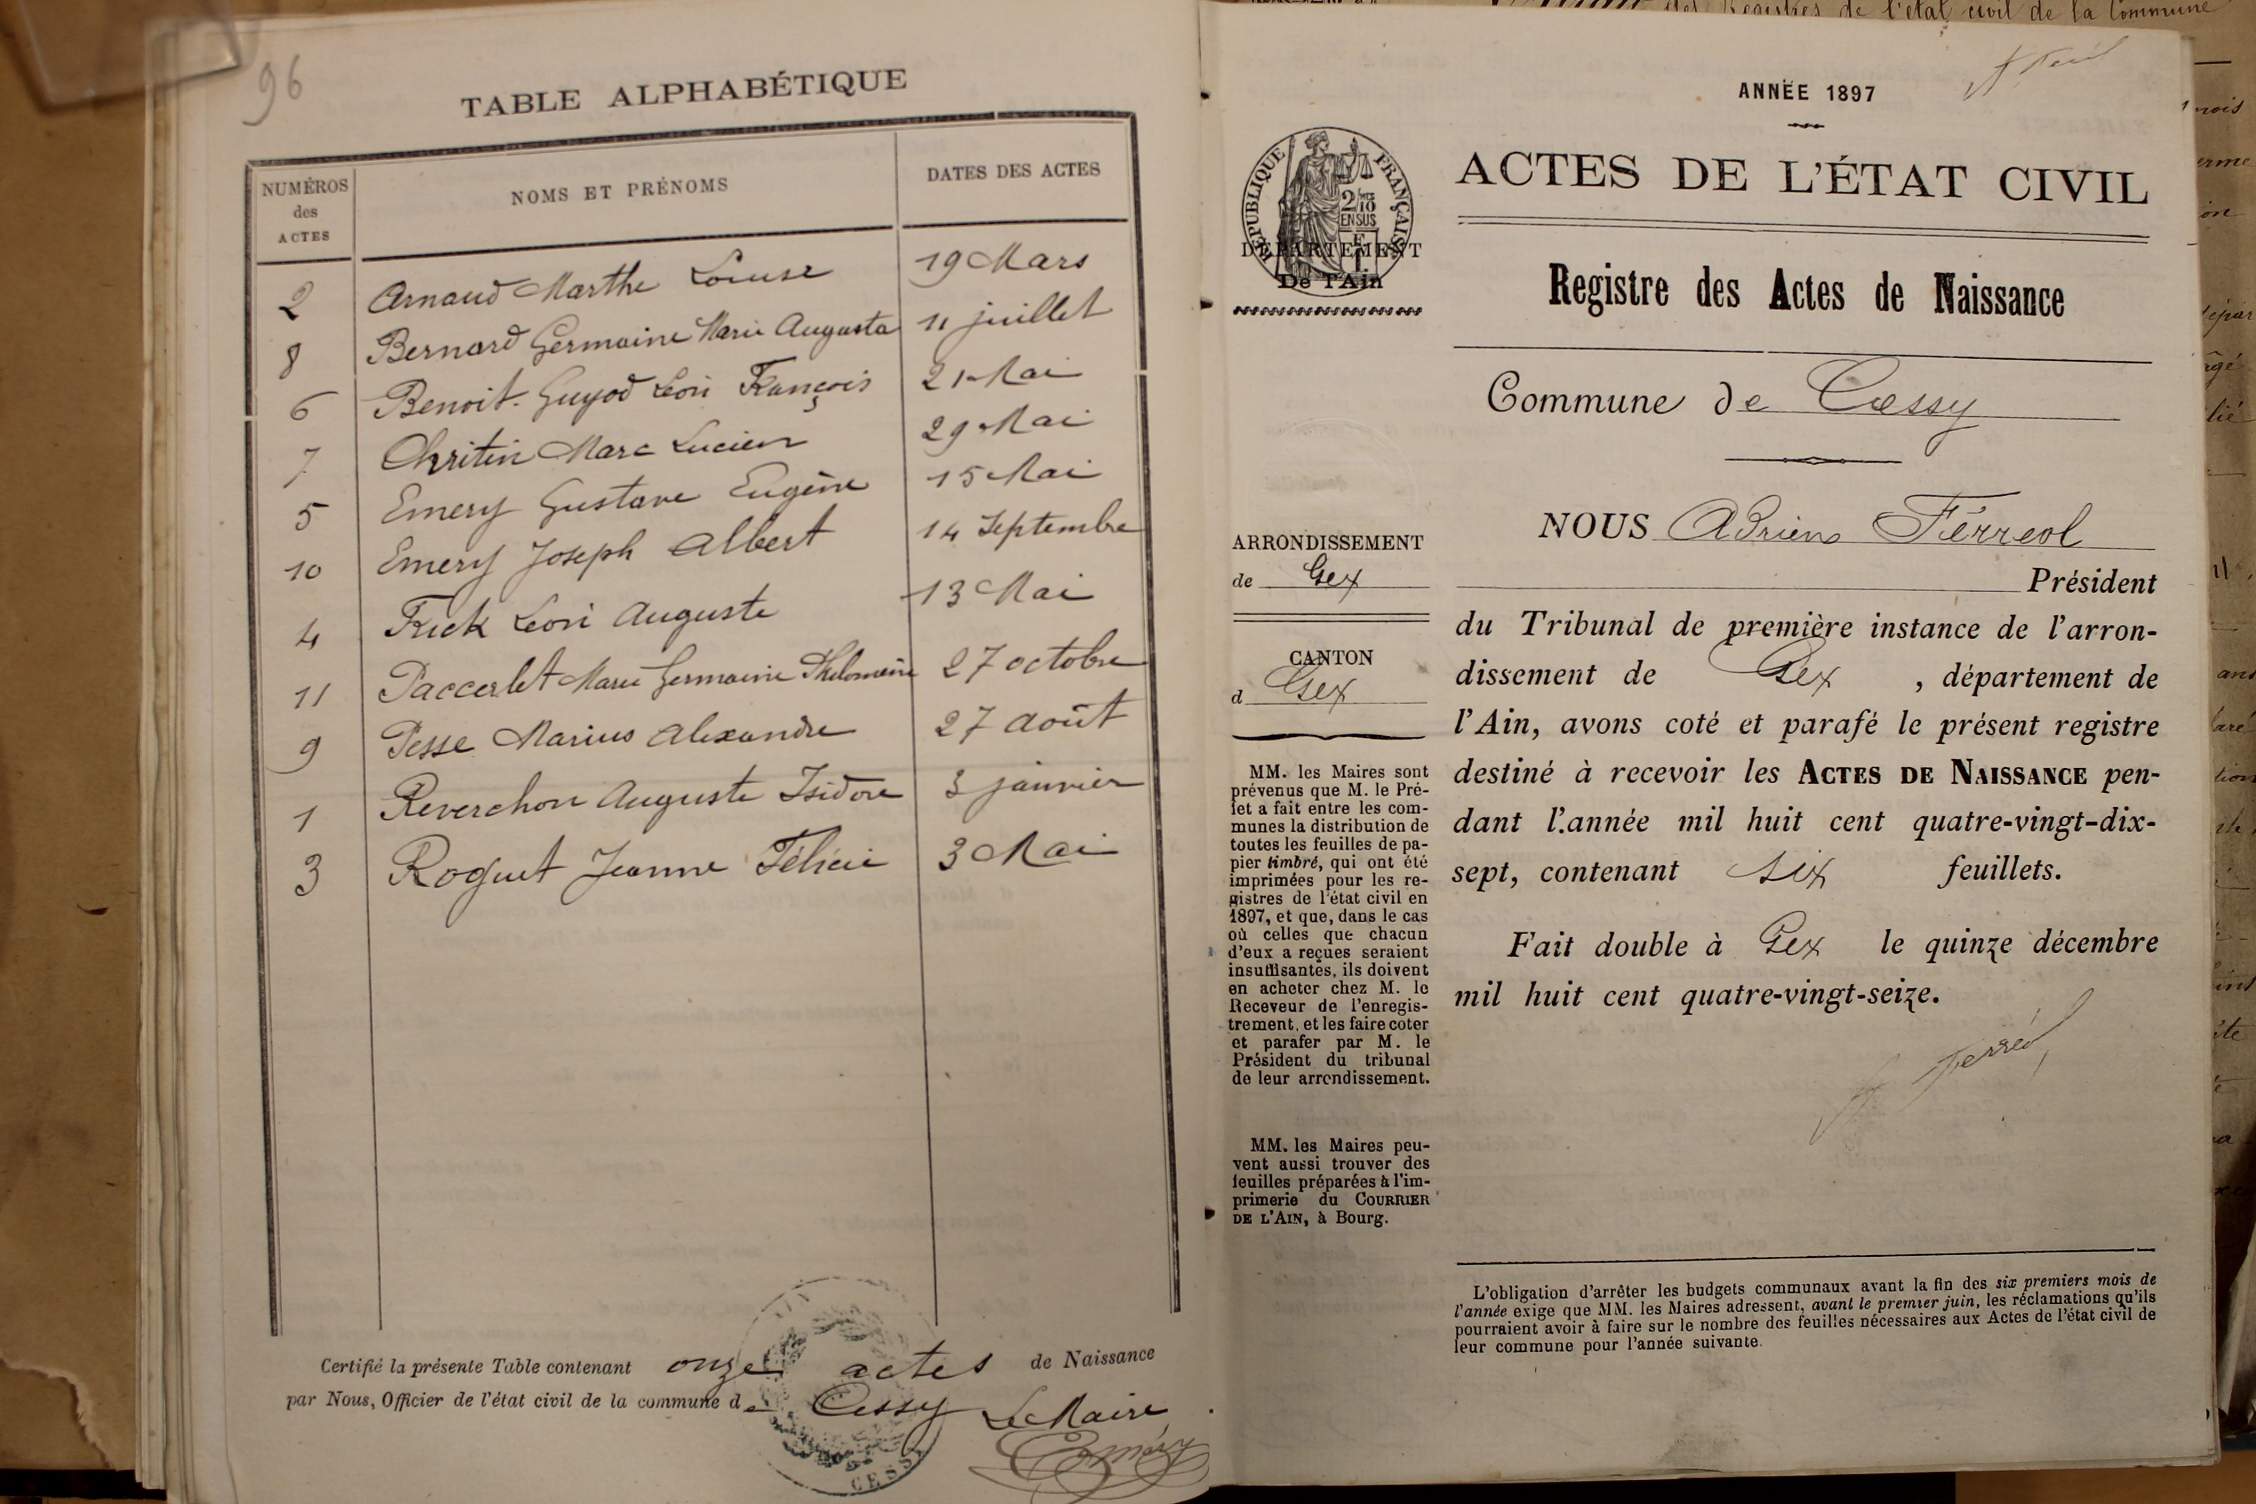 96
TABLE ALPHABÉTIQUE
NUMÉROS des ACTES
NOMS ET PRÉNOMS
DATES DES ACTES
2 Arnaud Marthe Louise 19 Mars
8 Bernard Germaine Marie Augusta 11 juillet
6 Benoit-Guyod Léon François 21 Mai
7 Chritin Marc Lucien 29 Mai
5 Emery Gustave Eugène 15 Mai
10 Emery Joseph Albert 14 Septembre
4 Frick Léon Auguste 13 Mai
11 Paccerlet Marie Germaine Philomène 27 octobre
9 Pesse Marius Alexandre 27 août
1 Reverchon Auguste Isidore 3 janvier
3 Roguet Jeanne Félicie 3 Mai
Certifié la présente Table contenant onze actes de Naissance
par Nous, Officier de l'état civil de la commune de Cessy Le Maire
Emery
CESSY
des Registres de l'état civil de la Commune
ANNÉE 1897
RÉPUBLIQUE FRANÇAISE
2/10 EN SUS
DÉPARTEMENT
De l'Ain
ACTES DE L'ÉTAT CIVIL
Registre des Actes de Naissance
Commune de Cessy
ARRONDISSEMENT
de Gex
CANTON
d Gex
MM. les Maires sont
prévenus que M. le Pré-
fet a fait entre les com-
munes la distribution de
toutes les feuilles de pa-
pier timbré, qui ont été
imprimées pour les re-
gistres de l'état civil en
1897, et que, dans le cas
où celles que chacun
d'eux a reçues seraient
insuffisantes, ils doivent
en acheter chez M. le
Receveur de l'enregis-
trement, et les faire coter
et parafer par M. le
Président du tribunal
de leur arrondissement.
MM. les Maires peu-
vent aussi trouver des
feuilles préparées à l'im-
primerie du COURRIER
DE L'AIN, à Bourg.
NOUS Adrien Ferreol
Président
du Tribunal de première instance de l'arron-
dissement de Gex, département de
l'Ain, avons coté et parafé le présent registre
destiné à recevoir les ACTES DE NAISSANCE pen-
dant l'année mil huit cent quatre-vingt-dix-
sept, contenant six feuillets.
Fait double à Gex le quinze décembre
mil huit cent quatre-vingt-seize.
Ferréol
L'obligation d'arrêter les budgets communaux avant la fin des six premiers mois de
l'année exige que MM. les Maires adressent, avant le premier juin, les réclamations qu'ils
pourraient avoir à faire sur le nombre des feuilles nécessaires aux Actes de l'état civil de
leur commune pour l'année suivante.